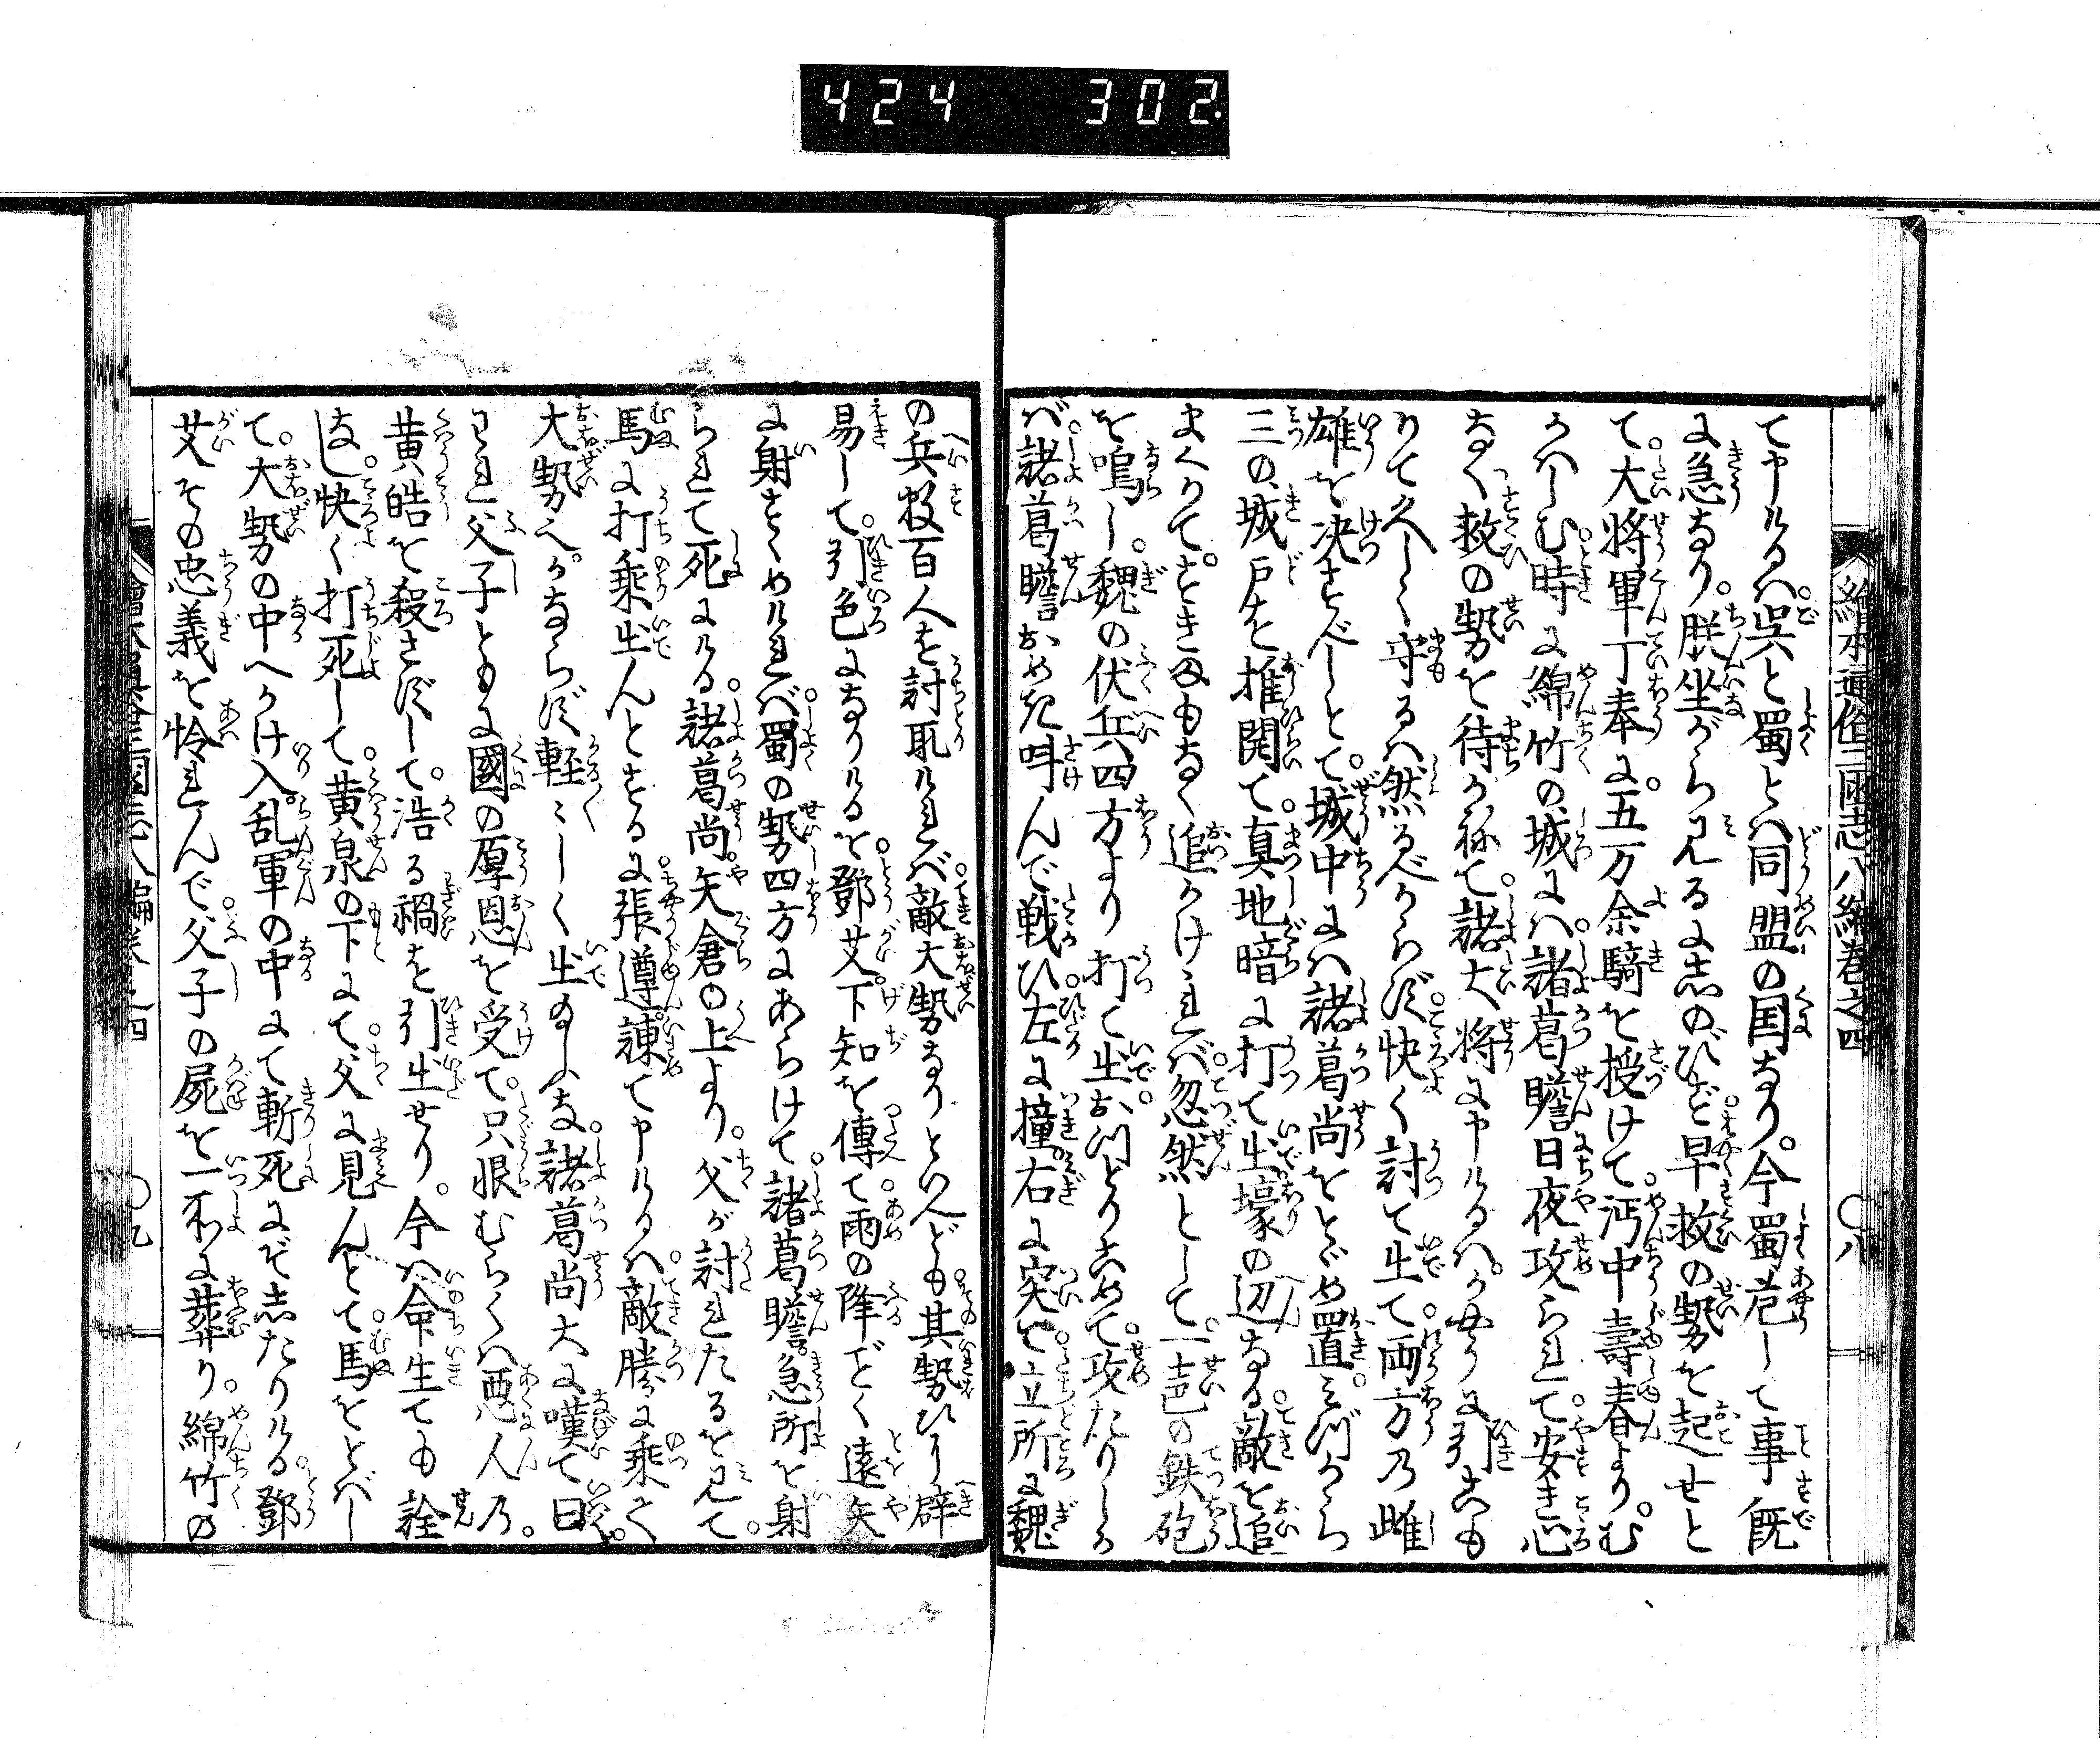 424 302.
繪本通俗三國志八編巻之四 〇八
て申けるハ。呉と蜀とハ同盟の国なり。今蜀危して事既
に急なり。朕坐がら見るに志のびず早救の勢を起せと
て。大将軍丁奉に。五万余騎を授けて。沔中壽春より。む
かハしむ。時に綿竹の城にハ。諸葛瞻日夜攻られて。安き心
なく救の勢を待かねて。諸大将に申けるハ。かやうに引こも
りて久しく守るハ然るべからず。快く討て出て。両方の雌
雄を決すべしとて。城中にハ諸葛尚をとゞめ置。ミづから
三の城戸を推開て。真地暗に打て出。壕の辺なる。敵を追
まくりて。すきまもなく追かけゝれバ。忽然として。一声の鉄砲
を鳴し。魏の伏兵四方より打て出。おつとりこめて。攻たりしか
バ。諸葛瞻おめき叫んで戦ひ。左に撞。右に突て。立所に魏
の兵数百人を討取けれバ。敵大勢なりといへども。其勢ひに辟
易して。引色になりけるを。鄧艾。下知を傳て。雨の降ごとく遠矢
に射すくめけれバ。蜀の勢四方にあらけて。諸葛瞻。急所を射
られて死にける。諸葛尚。矢倉の上より。父が討れたるを見て。
馬に打乗出んとするに。張遵。諫て申けるハ。敵勝に乗て
大勢也。かならず軽〻しく出給ふな。諸葛尚大に嘆て曰。
われ父子ともに國の厚恩を受て。只恨むらくハ悪人の。
黄皓を殺さずして。浩る禍を引出せり。今ハ命生ても詮
なし。快く打死して。黄泉の下にて。父に見んとて。馬をとばし
て。大勢の中へかけ入。乱軍の中にて斬死にぞしたりける。鄧
艾その忠義を怜れんで。父子の屍を一所に葬り。綿竹の
〇九